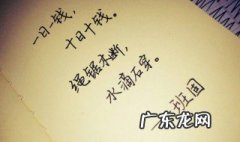 一日一钱，
十日十钱。
绳锯木断，
水滴石穿。
班固
广东龙网